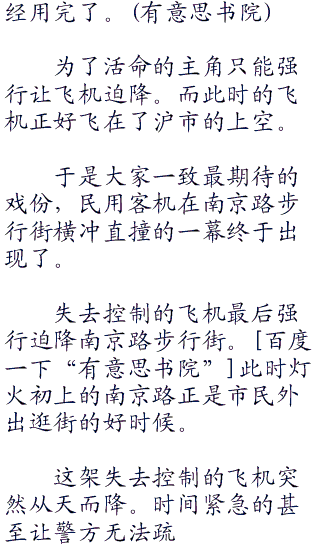 经用完了。(有意思书院)
为了活命的主角只能强
行让飞机迫降。而此时的飞
机正好飞在了沪市的上空。
于是大家一致最期待的
戏份，民用客机在南京路步
行街横冲直撞的一幕终于出
现了。
失去控制的飞机最后强
行迫降南京路步行街。[百度
一下“有意思书院”]此时灯
火初上的南京路正是市民外
出逛街的好时候。
这架失去控制的飞机突
然从天而降。时间紧急的甚
至让警方无法疏